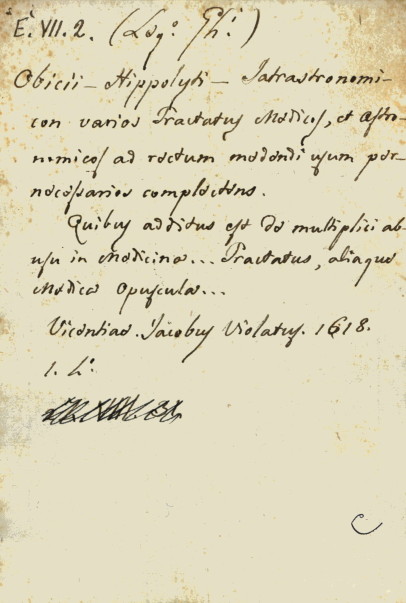 E. VII. 2. (Leg.º Ph.i)
Obicii - Hippolyti - Iatrastronomi-
con varios Tractatus Medicos, et Astro-
nomicos ad rectum medendi usum per-
necessarios complectens.
Quibus additus est de multiplici ab-
usu in Medicina... Tractatus, aliaque
Medica Opuscula...
Vicentiae. Jacobus Violatus. 1618.
1. L.º
C